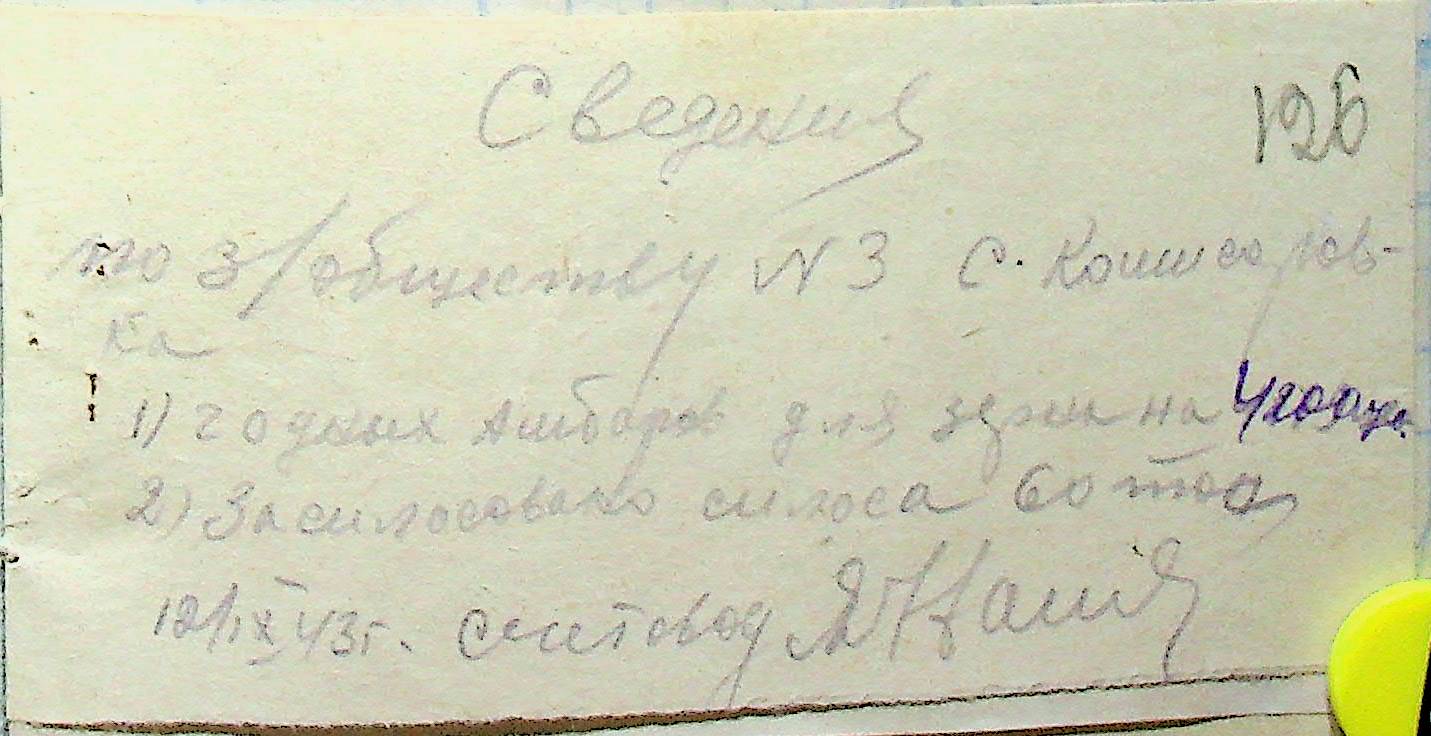 Сведения
126
по з/обществу N 3 с. Комисаров-
ка
1) годных амбаров для зерна на
2) Засилосовано силоса 60 тон
12/IX 43 г. счетовод